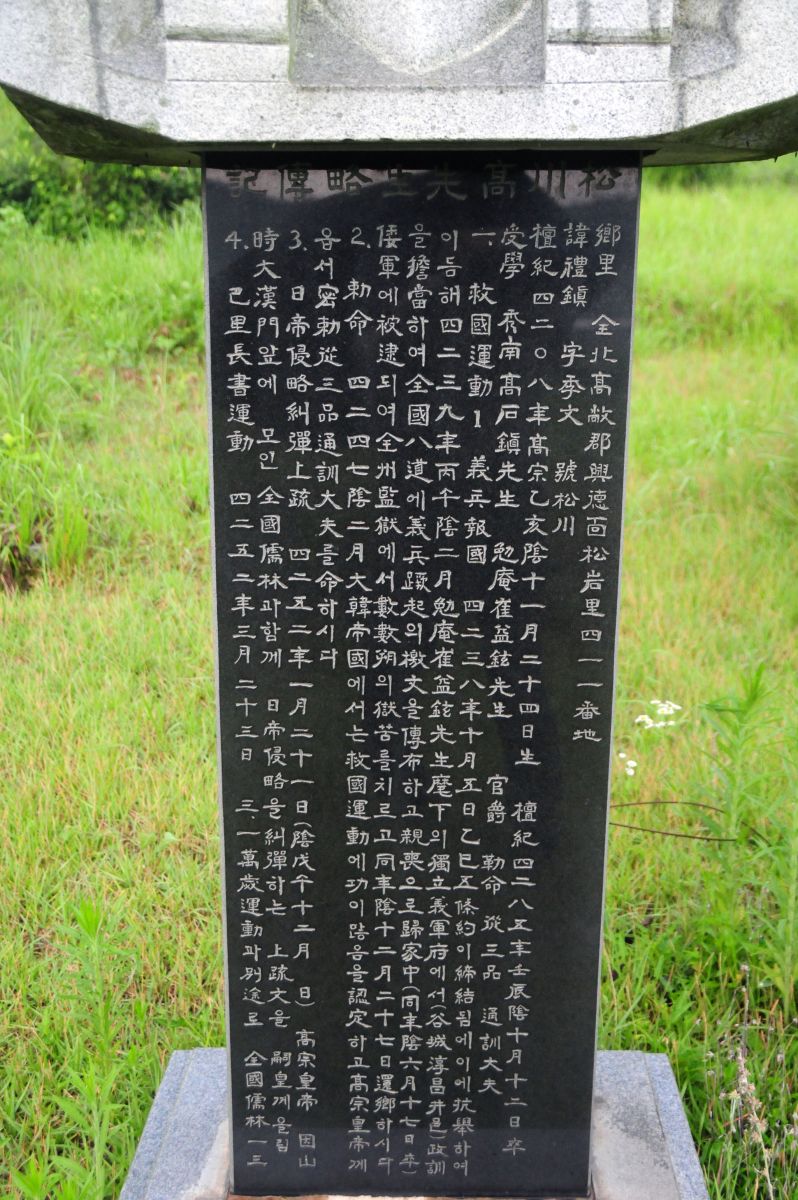 松川高先生略傳記
鄕里 全北高敞郡興德面松岩里四一一番地
諱禮鎭 字季文 號松川
檀紀四二〇八年高宗乙亥陰十一月二十四日生 檀紀四二八五年壬辰陰十月十二日卒
受學 秀南高石鎭先生 勉庵崔益鉉先生 官爵 勅命 從三品 通訓大夫
一. 救國運動 1 義兵報國 四二三八年十月五日乙巳五條約이締結됨에이에抗擧하여
이듬해四二三九年丙午陰二月勉庵崔益鉉先生麾下의獨立義軍府에서(谷城淳昌井邑)政訓
을擔當하여全國八道에義兵蹶起의檄文을傳布하고親喪으로歸家中(同年陰六月十七日卒)
倭軍에被逮되여全州監獄에서數數朔의獄苦를치르고同年陰十二月二十七日還鄕하시다
2. 勅命 四二四七陰二月大韓帝國에서는救國運動에功이많음을認定하고高宗皇帝께
옵서密勅從三品通訓大夫를命하시다
3. 日帝侵略糾彈上疏 四二五二年一月二十一日(陰戊午十二月 日) 高宗皇帝 因山
時大漢門앞에 모인全國儒林과함께 日帝侵略을糾彈하는 上疏文을 嗣皇께올림
4. 巴里長書運動 四二五二年三月二十三日 三.一萬歲運動과別途로 全國儒林一三